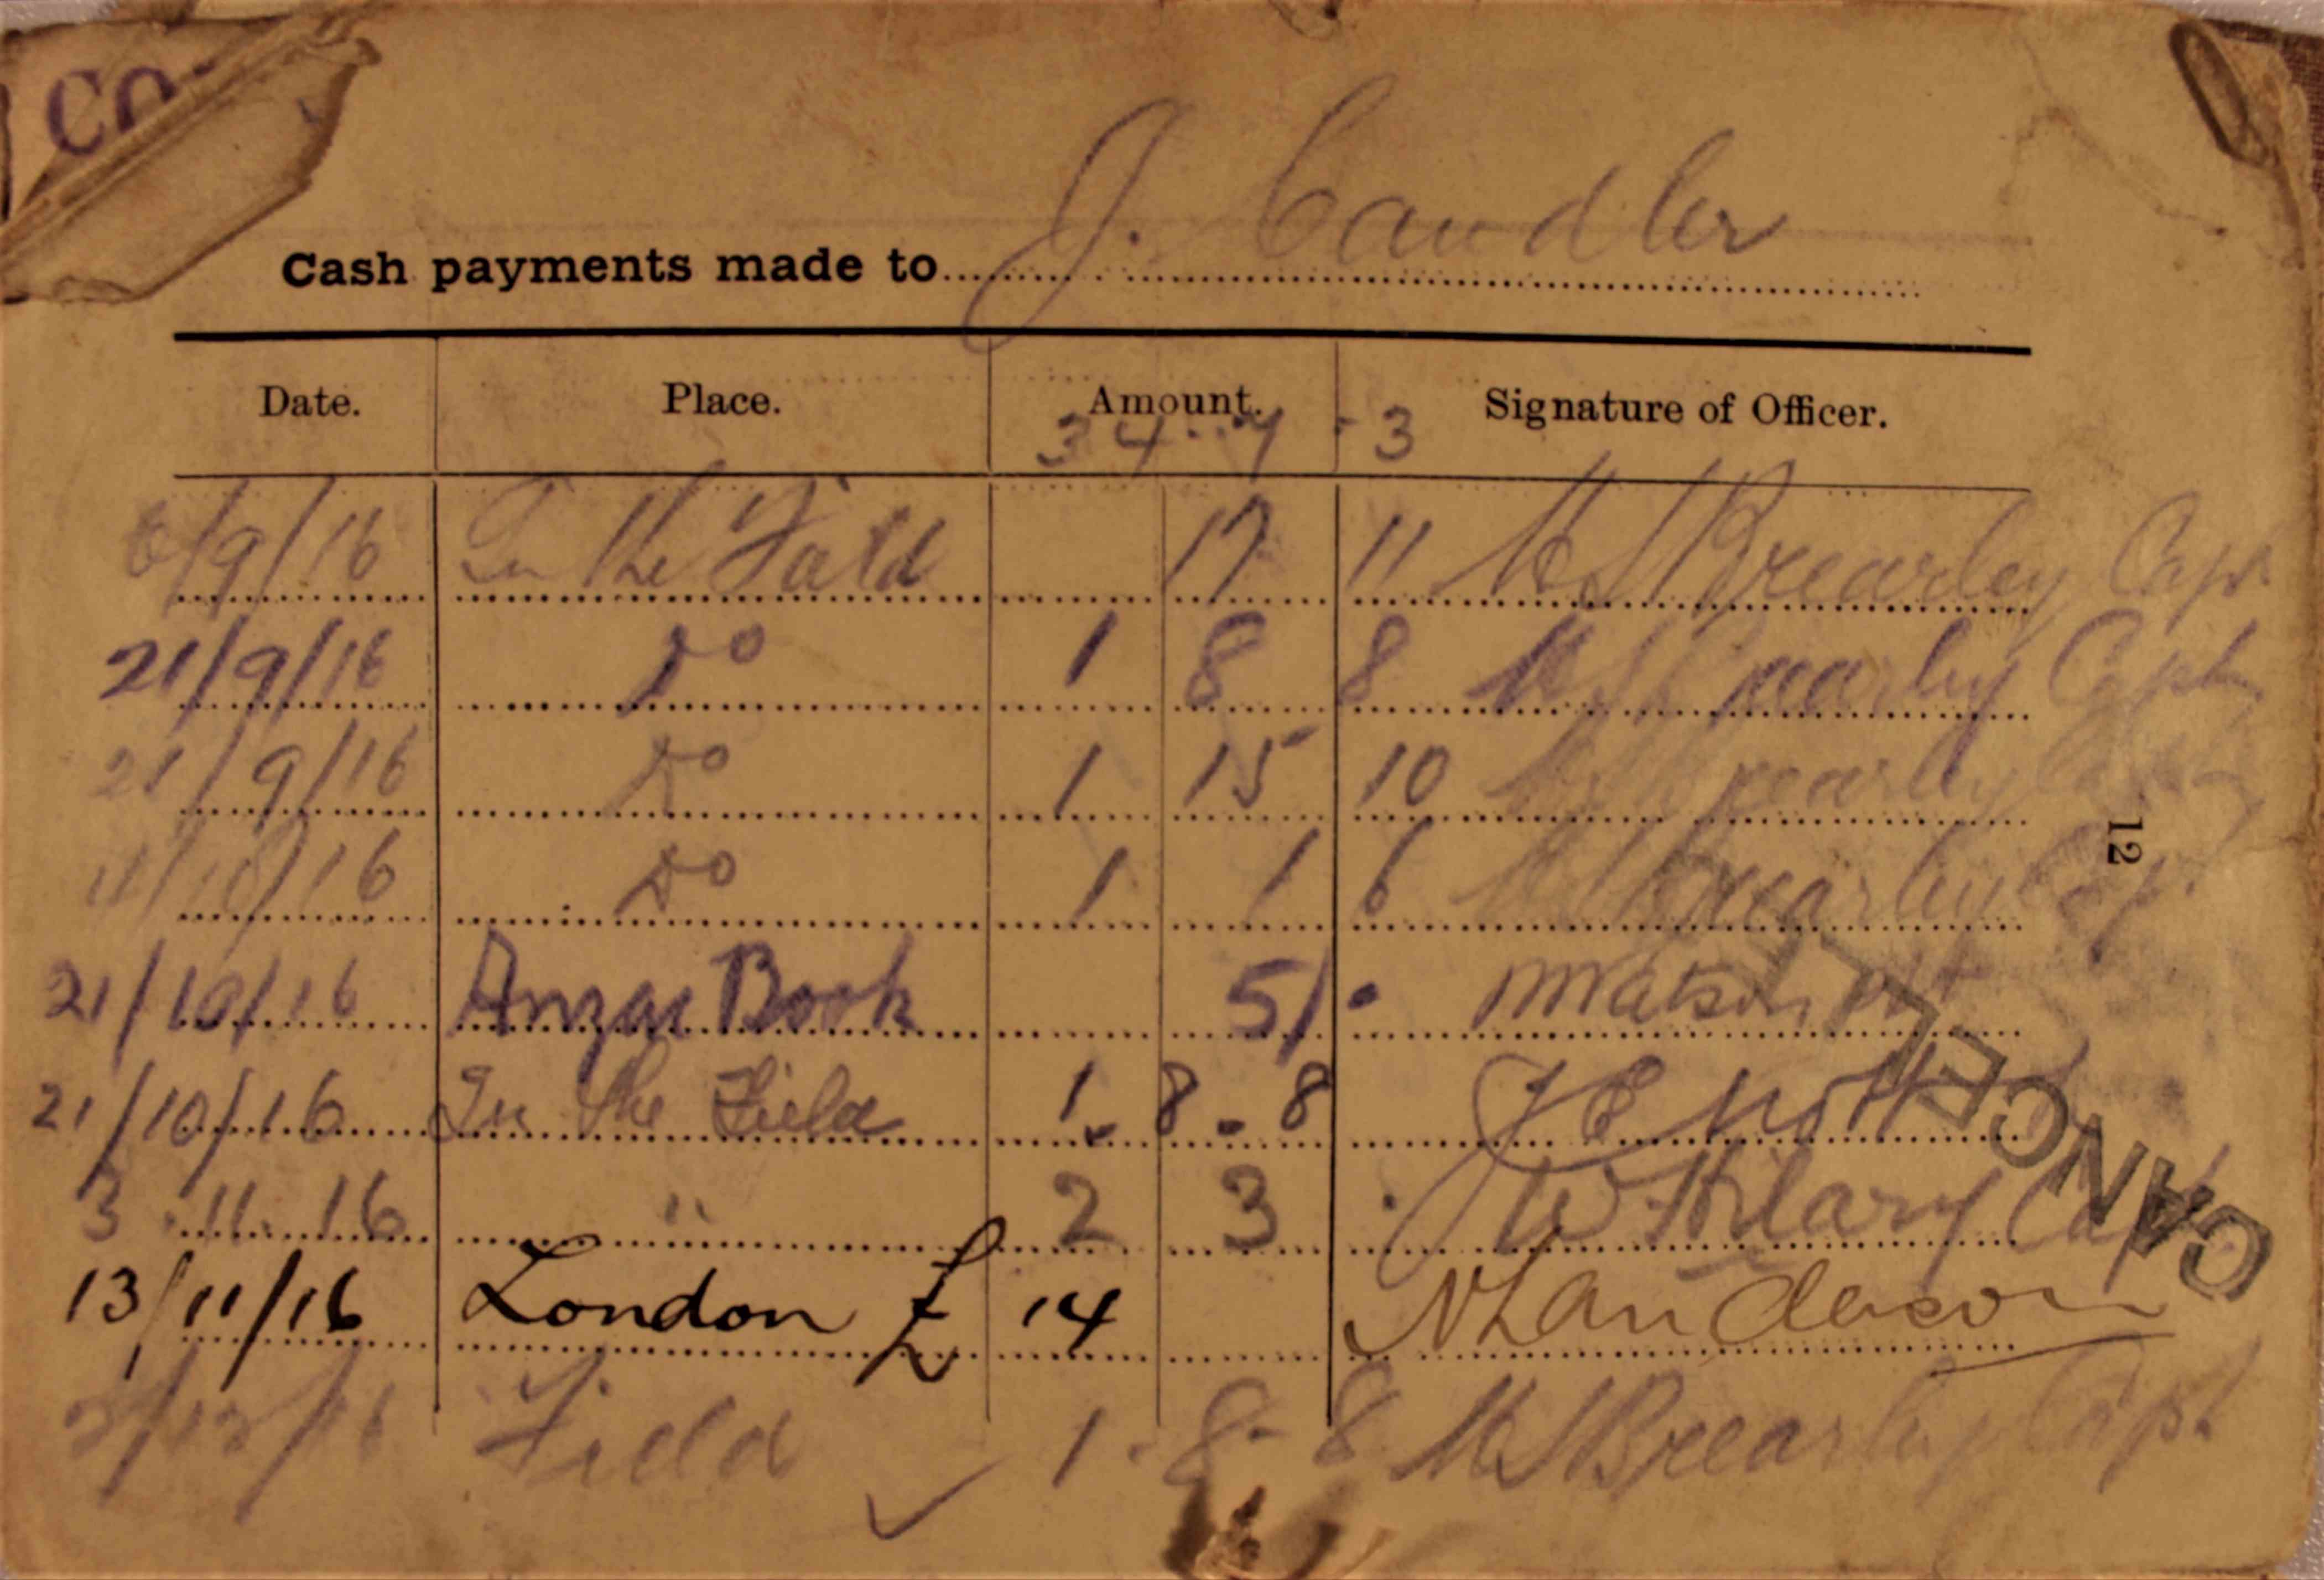 CO
Cash payments made to J. Caudler
Date. Place. Amount. Signature of Officer.
34 · 4 · 3
6/9/16 In the Faild 17 11 H S Brearley Capt
21/9/16 Do 1 8 8 H S Brearley Capt
21/9/16 Do 1 15 10 Brearley
11/10/16 Do 1 1 6 Brearley Capt
12
21/10/16 Anzac Book 5/ · Watson
21/10/16 In the Field 1 - 8 - 8 J E Nott
3 · 11 · 16 " 2 3 · W Hilary Capt
CANCEL
13/11/16 London £ 14 N L Anderson
Field 1 · 8 - 8 H S Brearley Capt